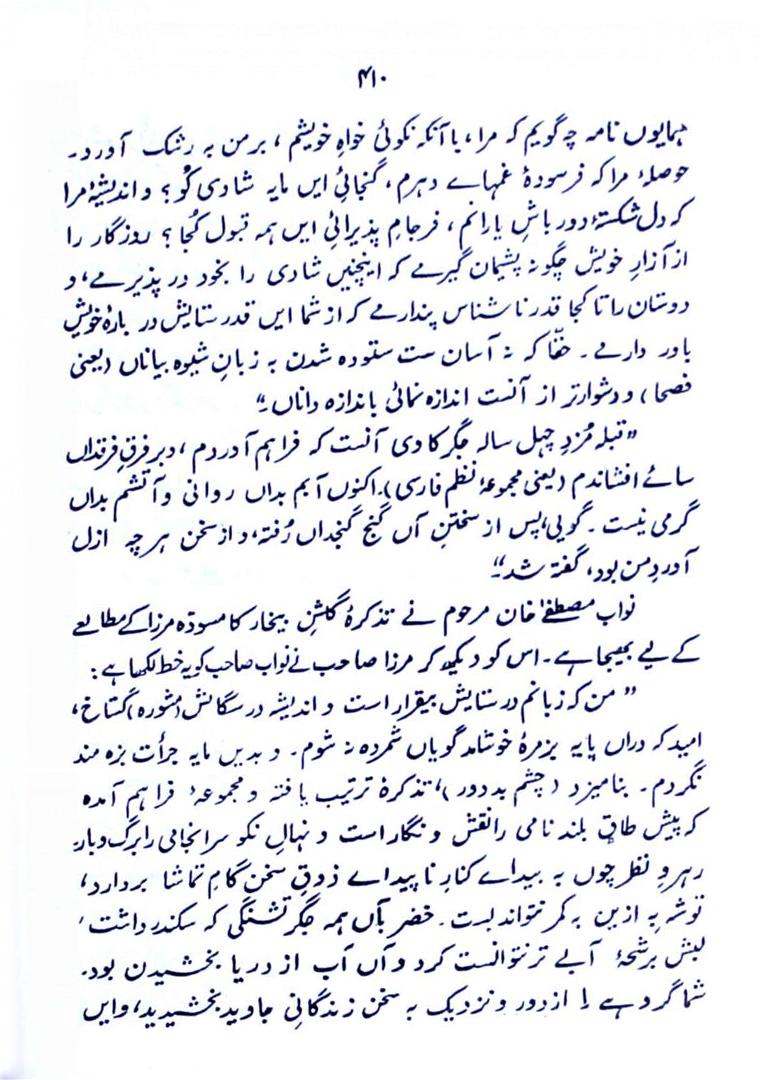 ۴۱۰
ہمایوں نامہ چہ گویم کہ مرا، با آنکہ نکوئی خواہِ خویشم، برمن بہ رشک آورد۔
حوصلۂ مرا کہ فرسودۂ غمہاے دہرم، گنجائیِ ایں مایہ شادی کُو؟ و اندیشۂ مرا
کہ دل شکستۂ دورباشِ یارانم، فرجامِ پذیرائیِ ایں ہمہ قبول کُجا؟ روزگار را
از آزارِ خویش چگونہ پشیمان گیرمے کہ اینچنیں شادی را بخود در پذیرمے، و
دوستاں را تا کجا قدر ناشناس پندارمے کہ از شما ایں قدر ستایش در بارۂ خویش
باور دارمے۔ حقّا کہ نہ آسان ست ستودہ شدن بہ زبانِ شیوہ بیاناں (یعنی
فصحا) و دشوارتر از آنست اندازہ نمائی باندازہ داناں۔"
"قبلہ مُزدِ چہل سالہ جگر کاوی آنست کہ فراہم آوردم، و بر فرقِ فرقداں
سائے افشاندم (یعنی مجموعۂ نظم فارسی)۔ اکنوں آبم بداں روانی و آتشم بداں
گرمی نیست۔ گویی، پس از سختنِ آں گنج گنجداں رُفتہ، و از سخن ہر چہ ازل
آوردِ من بود، گفتہ شد"۔
نواب مصطفےٰ خان مرحوم نے تذکرۂ گلشنِ بیخار کا مسودہ مرزا کے مطالعے
کے لیے بھیجا ہے۔ اس کو دیکھ کر مرزا صاحب نے نواب صاحب کو یہ خط لکھا ہے:
"من کہ زبانم در ستایش بیقرار است و اندیشہ در سگالش (مشورہ) گستاخ،
امید کہ دراں پایہ بزمرۂ خوشامد گویاں شمردہ نہ شوم۔ و بدیں مایہ جرأت بزہ مند
نگردم۔ بنامیزد (چشم بد دور)، تذکرۂ ترتیب یافتہ و مجموعۂ فراہم آمدہ
کہ پیش طاقِ بلند نامی را نقش و نگار است و نہالِ نکو سرانجامی را برگ و بار۔
رہروِ نظر چوں بہ بیداے کنار ناپیداے ذوقِ سخن گامِ تماشا بردارد،
توشہ بہ ازین بہ کمر نتواند بست۔ خضر بآں ہمہ جگر تشنگی کہ سکندر داشت،
لبش برشحۂ آبے تر نتوانست کرد و آں آب از دریا بخشیدن بود۔
شما گروہے را از دور و نزدیک بہ سخن زندگانیِ جاوید بخشیدید، و ایں